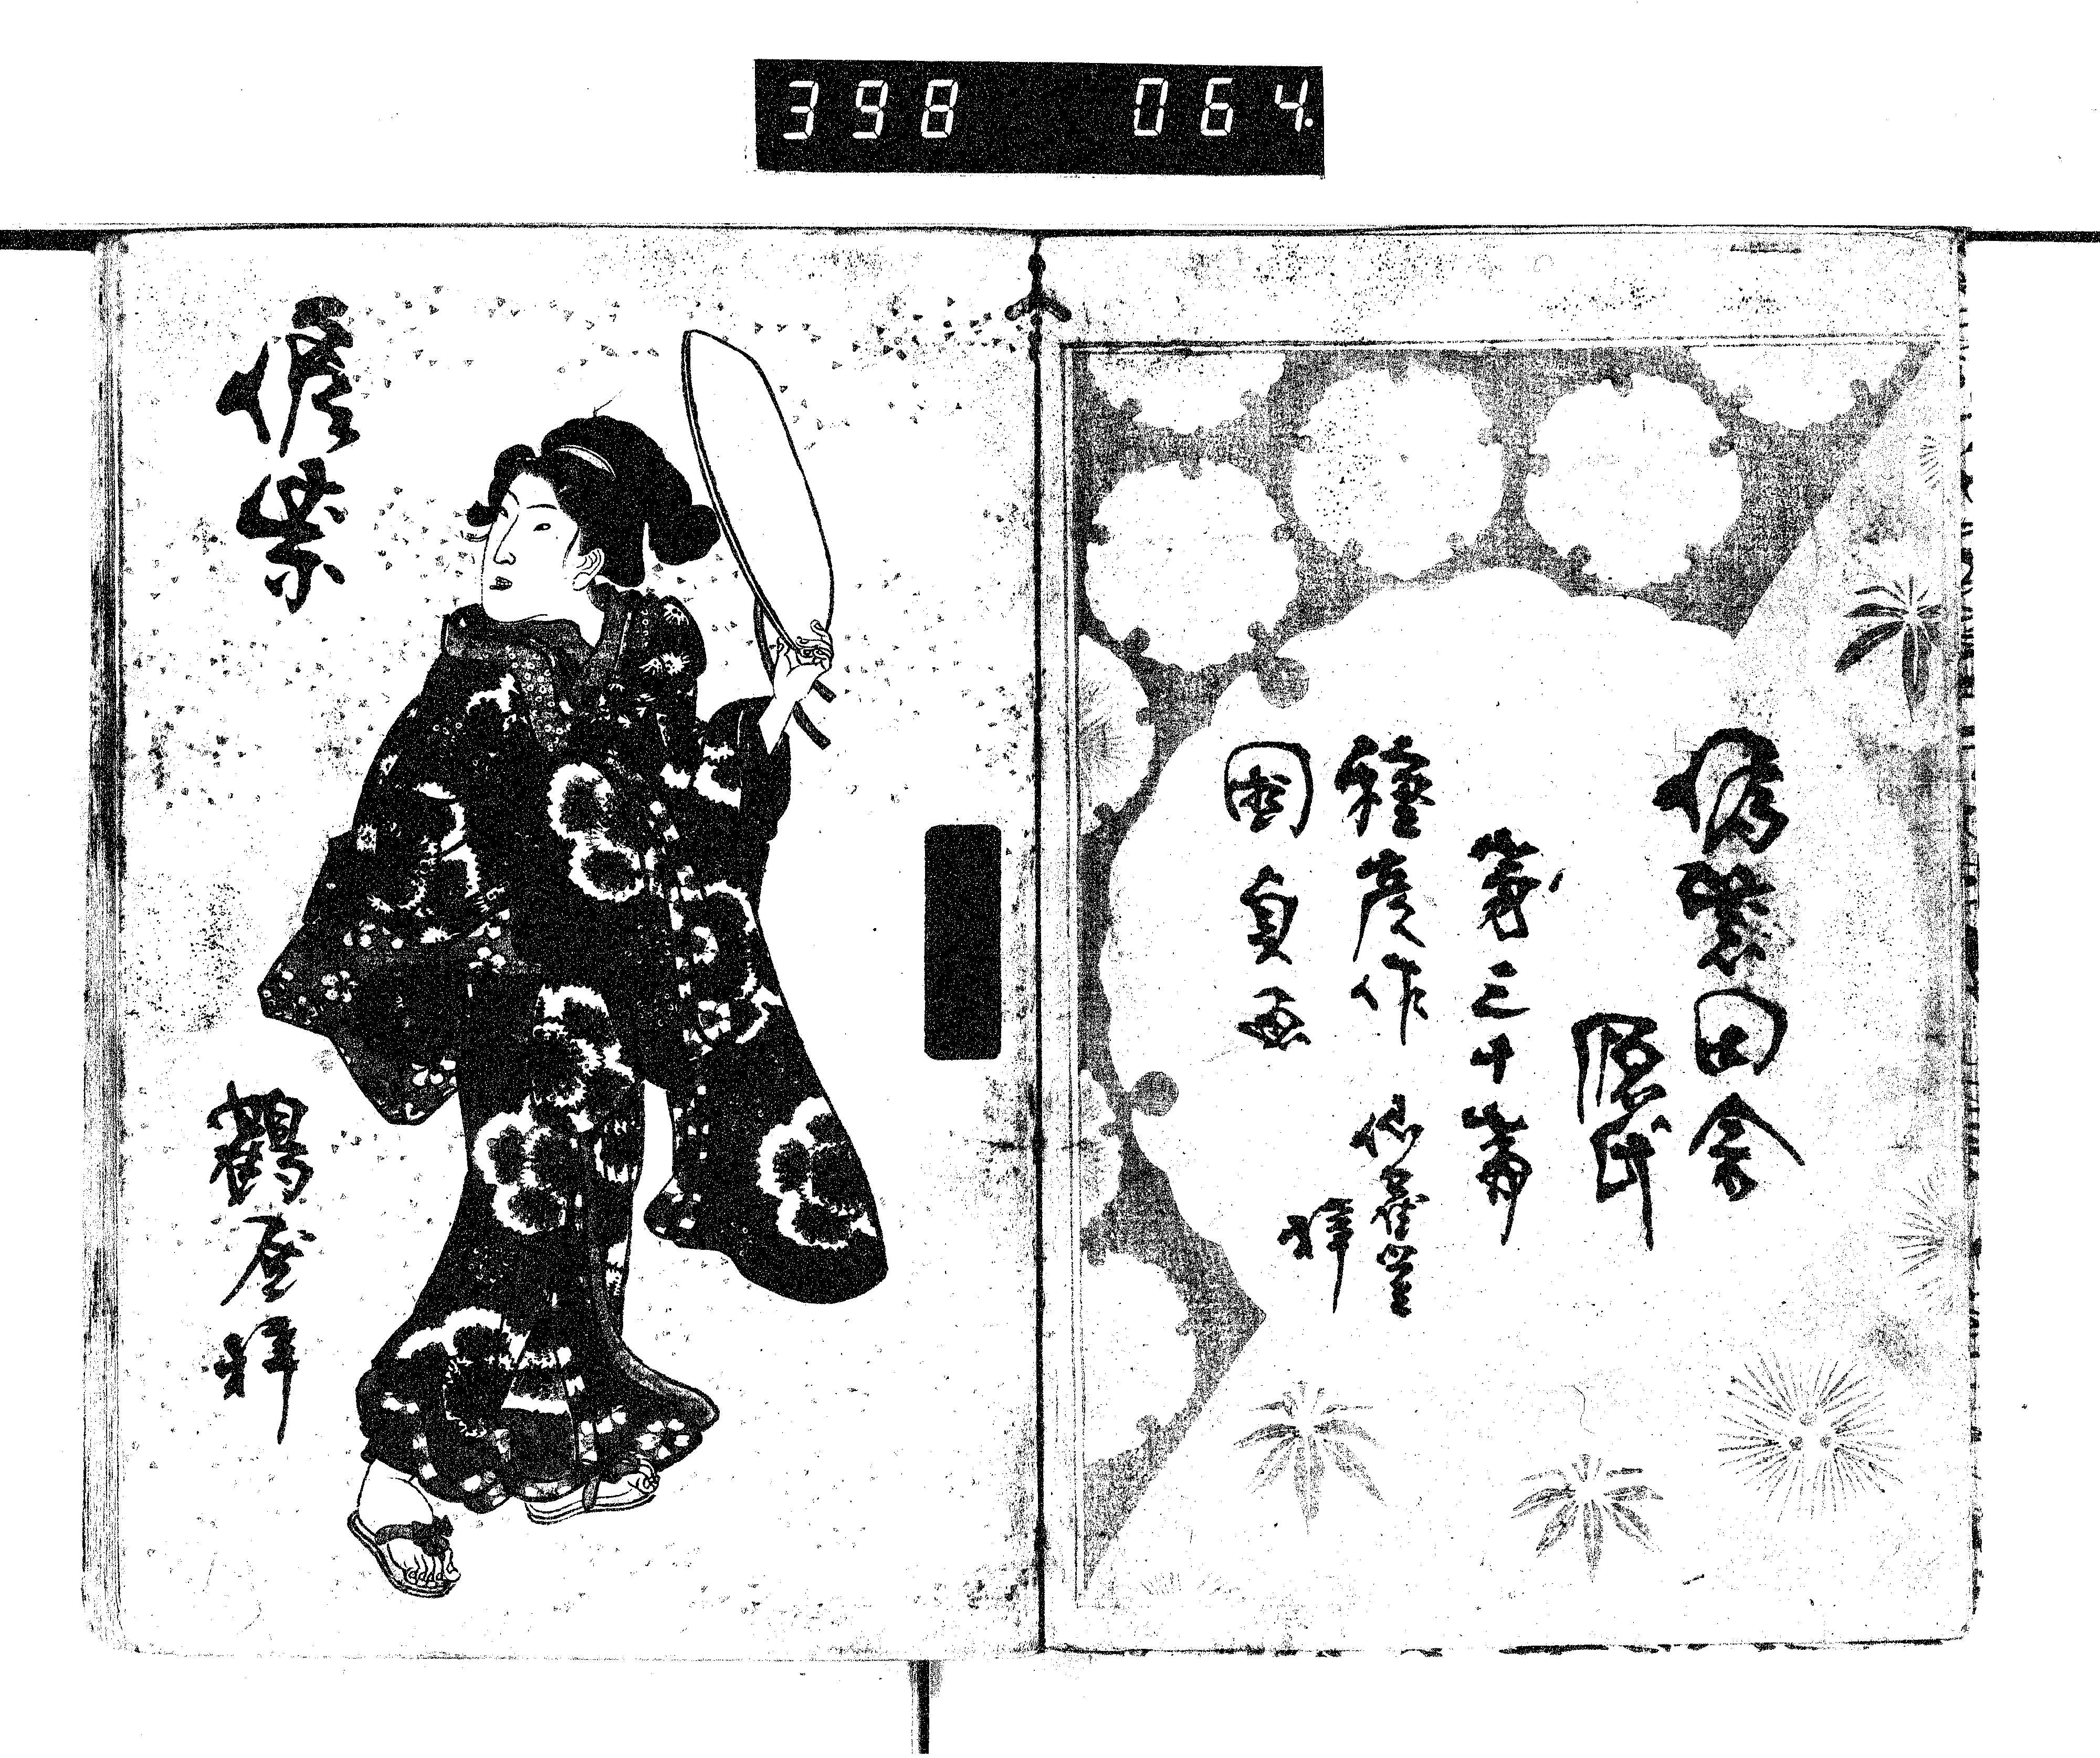 398 064.
偐紫田舎
源氏
第三十篇
種彦作
仙鶴堂
梓
国貞画
偐紫
鶴屋梓